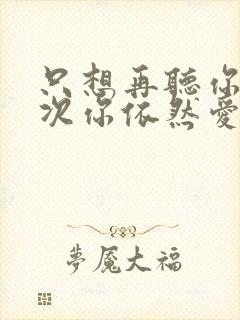 只想再聽你
次你依然愛
夢魘大福